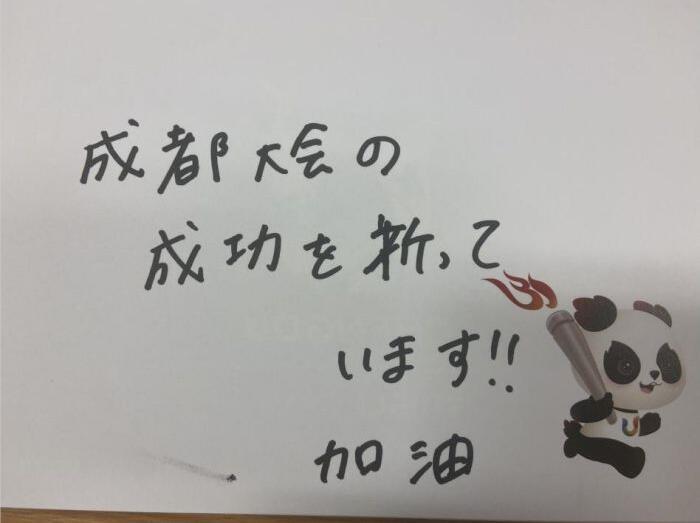 成都大会の
成功を祈って
います!!
加油